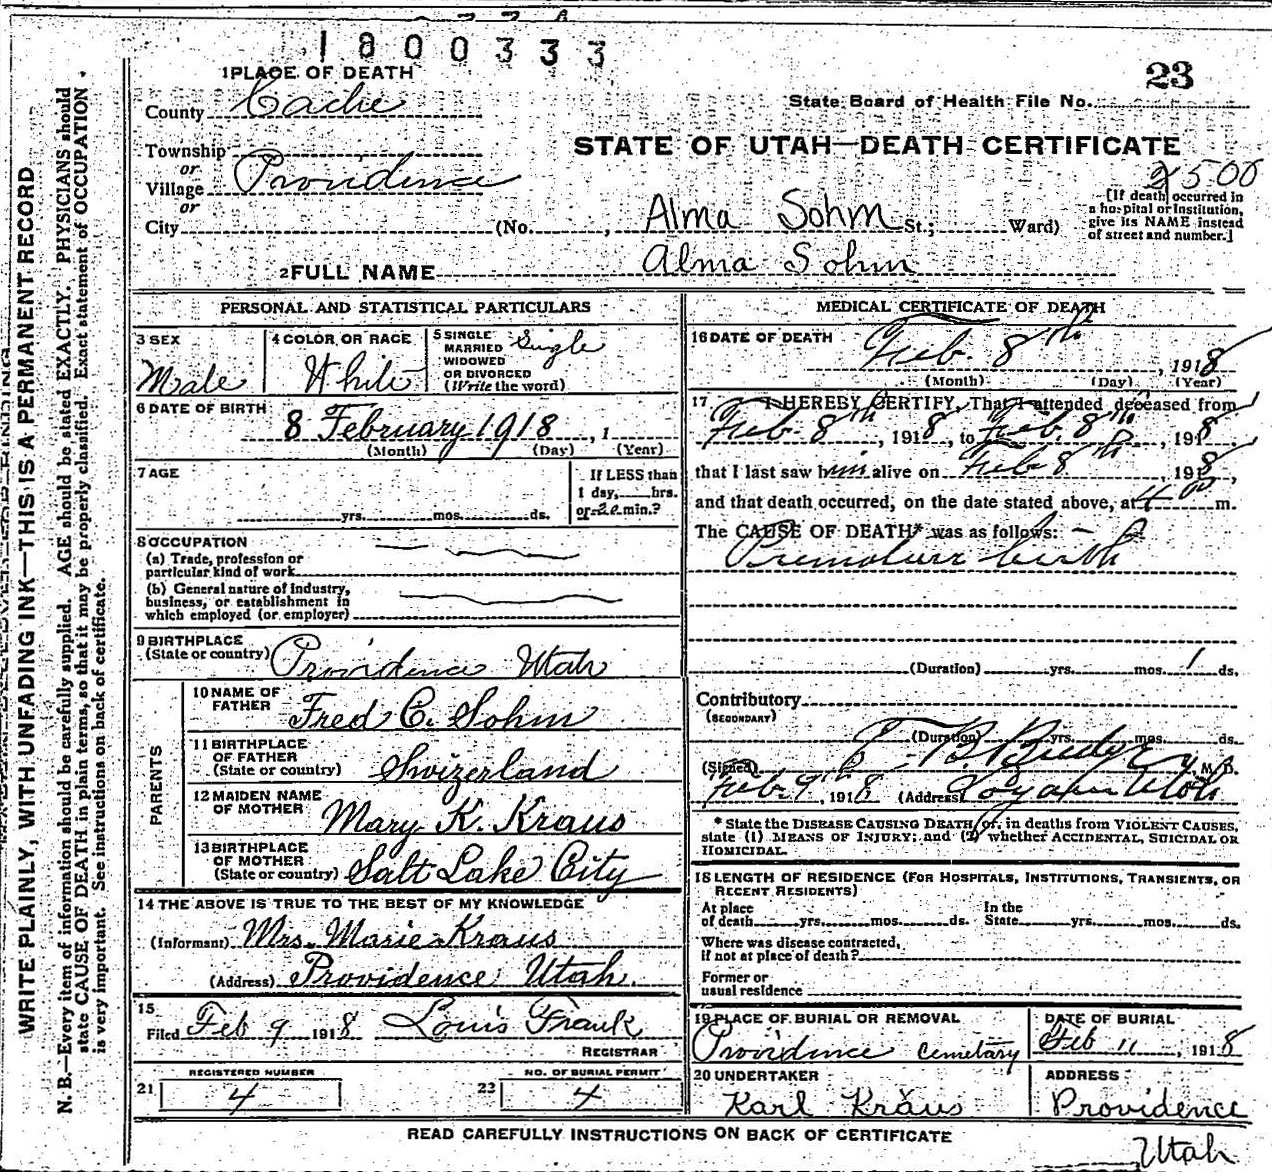 1800333
23
1 PLACE OF DEATH
County Cache
State Board of Health File No.
STATE OF UTAH—DEATH CERTIFICATE
Township
or
Village Providence
or
City (No. , Alma Sohm St.; Ward)
2500
[If death occurred in
a hospital or institution,
give its NAME instead
of street and number.]
2 FULL NAME Alma Sohm
PERSONAL AND STATISTICAL PARTICULARS
3 SEX
Male
4 COLOR OR RACE
White
5 SINGLE
MARRIED
WIDOWED
OR DIVORCED
(Write the word)
Single
6 DATE OF BIRTH
8 February 1918, 1
(Month) (Day) (Year)
7 AGE
yrs. mos. ds.
If LESS than
1 day, hrs.
or 20 min.?
8 OCCUPATION
(a) Trade, profession or
particular kind of work
(b) General nature of industry,
business, or establishment in
which employed (or employer)
9 BIRTHPLACE
(State or country) Providence Utah
PARENTS
10 NAME OF
FATHER Fred C. Sohm
11 BIRTHPLACE
OF FATHER
(State or country) Swizerland
12 MAIDEN NAME
OF MOTHER Mary K. Kraus
13 BIRTHPLACE
OF MOTHER
(State or country) Salt Lake City
14 THE ABOVE IS TRUE TO THE BEST OF MY KNOWLEDGE
(Informant) Mrs. Marie Kraus
(Address) Providence Utah.
15
Filed Feb 9 1918 Louis Frank
REGISTRAR
REGISTERED NUMBER
21 4
NO. OF BURIAL PERMIT
22 4
MEDICAL CERTIFICATE OF DEATH
16 DATE OF DEATH
Feb. 8th, 1918
(Month) (Day) (Year)
17 I HEREBY CERTIFY, That I attended deceased from
Feb. 8th, 1918, to Feb. 8th, 1918
that I last saw him alive on Feb 8th, 1918,
and that death occurred, on the date stated above, at 4 00 m.
The CAUSE OF DEATH* was as follows:
Premature birth
(Duration) yrs. mos. 1 ds.
Contributory
(SECONDARY)
(Duration) yrs. mos. ds.
(Signed) M. D.
Feb 9, 1918 (Address) Logan Utah
* State the DISEASE CAUSING DEATH, or, in deaths from VIOLENT CAUSES,
state (1) MEANS OF INJURY; and (2) whether ACCIDENTAL, SUICIDAL OR
HOMICIDAL.
18 LENGTH OF RESIDENCE (FOR HOSPITALS, INSTITUTIONS, TRANSIENTS, OR
RECENT RESIDENTS)
At place
of death yrs. mos. ds.
In the
State yrs. mos. ds.
Where was disease contracted,
if not at place of death?
Former or
usual residence
19 PLACE OF BURIAL OR REMOVAL
Providence Cemetary
DATE OF BURIAL
Feb 11, 1918
20 UNDERTAKER
Karl Kraus
ADDRESS
Providence
Utah
READ CAREFULLY INSTRUCTIONS ON BACK OF CERTIFICATE
WRITE PLAINLY, WITH UNFADING INK—THIS IS A PERMANENT RECORD
N. B.—Every item of information should be carefully supplied. AGE should be stated EXACTLY. PHYSICIANS should
state CAUSE OF DEATH in plain terms, so that it may be properly classified. Exact statement of OCCUPATION
is very important. See instructions on back of certificate.